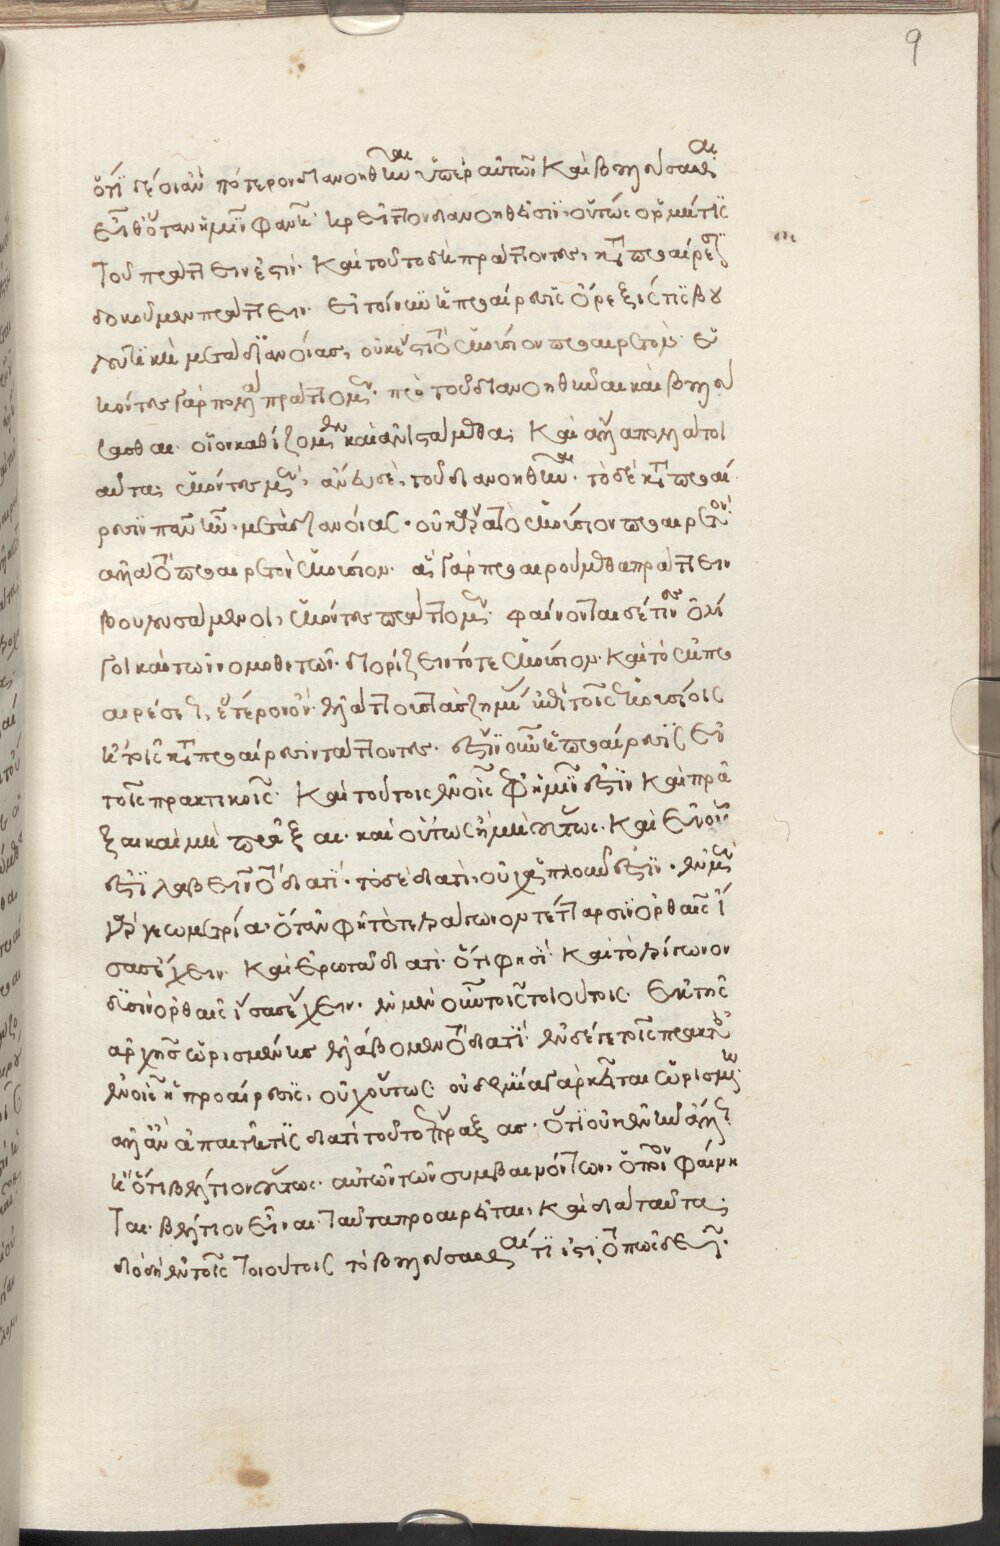 9
ὅτι δέοι ἂν πότερον διανοηθῆναι ὑπὲρ αὐτῶν καὶ βουλεύσασθαι
εἶθ' ὅταν ἡμῖν φανῇ κρεῖττον διανοηθεῖσιν, οὕτως ὁρμή τις
τοῦ πράττειν ἐστίν. καὶ τοῦτο δὴ πράττοντες, κατὰ προαίρεσιν
δοκοῦμεν πράττειν. εἰ τοίνυν ἡ προαίρεσις ὄρεξίς τις βου
λευτικὴ μετὰ διανοίας, οὐκ ἔστι τὸ ἑκούσιον προαιρετόν. ἑ
κόντες γὰρ πολλὰ πράττομεν πρὸ τοῦ διανοηθῆναι καὶ βουλεύ
σασθαι. οἷον καθίζομεν καὶ ἀνιστάμεθα, καὶ ἄλλα πολλὰ τοι
αῦτα, ἑκόντες μέν, ἄνευ δὲ τοῦ διανοηθῆναι. τὸ δὲ κατὰ προαί
ρεσιν πᾶν ἦν μετὰ διανοίας. οὐκ ἄρα τὸ ἑκούσιον προαιρετόν
ἀλλὰ τὸ προαιρετὸν ἑκούσιον. ἄν γὰρ προαιρούμεθα πράττειν
βουλευσάμενοι, ἑκόντες πράττομεν. φαίνονται δέ τινες ὀλί
γοι καὶ τῶν νομοθετῶν διορίζειν τό τε ἑκούσιον καὶ τὸ ἐκ προ
αιρέσεως, ἕτερον ὄν, ἐλάττους τὰς ζημίας ἐπὶ τοῖς ἑκουσίοις
ἢ τοῖς κατὰ προαίρεσιν τάττοντες. ἔστιν οὖν ἡ προαίρεσις ἐν
τοῖς πρακτικοῖς. καὶ τούτοις ἐν οἷς ἐφ' ἡμῖν ἐστιν καὶ πρᾶ
ξαι καὶ μὴ πρᾶξαι. καὶ οὕτως ἢ μὴ οὕτως. καὶ ἐν οἷς
ἐστι λαβεῖν τὸ διατί. τὸ δὲ διατὶ, οὐχ ἁπλοῦν ἐστιν. ἐν μὲν
γὰρ γεωμετρία ὅταν φῇ τὸ τετράγωνον τέτταρσιν ὀρθαῖς ἴ
σας ἔχειν. καὶ ἐρωτᾷ διατί. ὅτι φησὶ καὶ τὸ τρίγωνον
δυσὶν ὀρθαῖς ἴσας ἔχειν. ἐν μὲν οὖν τοῖς τοιούτοις ἐκ τῆς
ἀρχῆς ὡρισμένης ἐλάβομεν τὸ διατί. ἐν δέ γε τοῖς πρακτοῖς
ἐν οἷς ἡ προαίρεσις, οὐχ οὕτως. οὐδεμία γὰρ κεῖται ὡρισμένη
ἀλλ' ἂν ἀπαιτῇ τις διατί τοῦτο ἔπραξας. ὅτι οὐκ ἐνῆν ἄλλως
ἢ ὅτι βέλτιον οὕτως. ἐξ αὐτῶν τῶν συμβαινόντων, ὁποῖ' ἂν φαίνη
ται βελτίον εἶναι ταῦτα προαιρεῖται, καὶ διὰ ταῦτα,
διὸ δὴ ἐν τοῖς τοιούτοις τὸ βουλεύσασθαί τί ἐστι τὸ πῶς δεῖ.